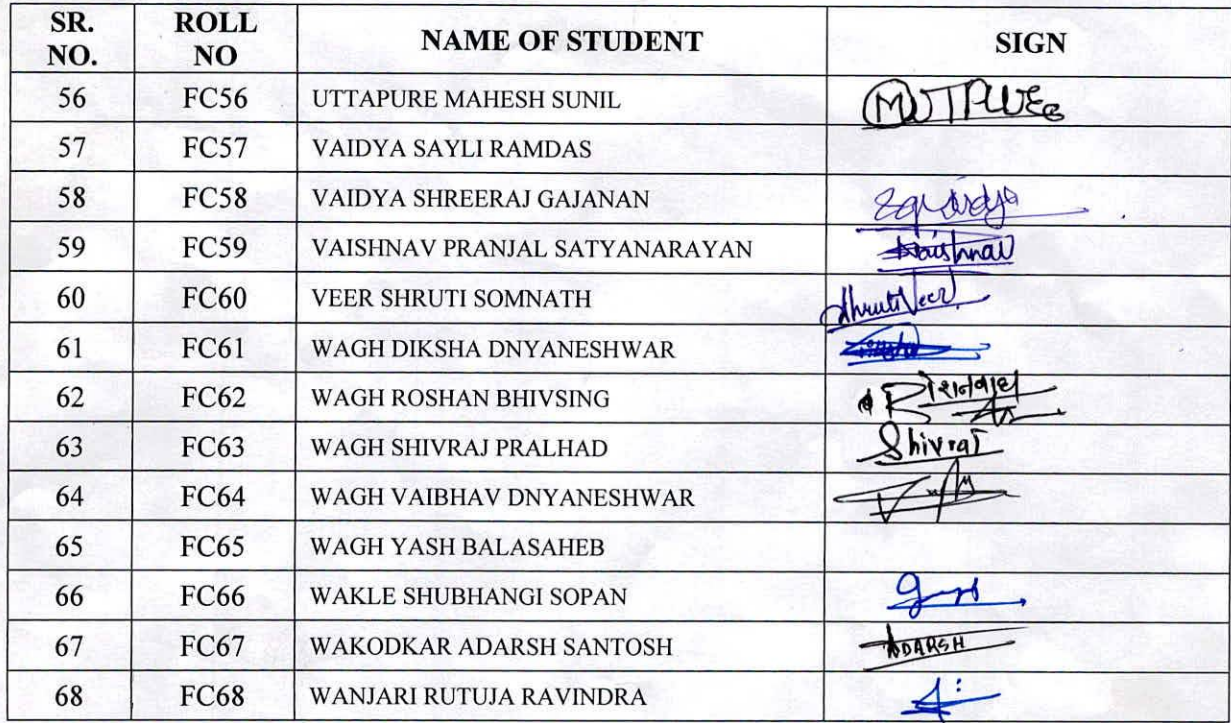 SR. NO. ROLL NO NAME OF STUDENT SIGN
56 FC56 UTTAPURE MAHESH SUNIL
57 FC57 VAIDYA SAYLI RAMDAS
58 FC58 VAIDYA SHREERAJ GAJANAN
59 FC59 VAISHNAV PRANJAL SATYANARAYAN Vaishnav
60 FC60 VEER SHRUTI SOMNATH Shruti Veer
61 FC61 WAGH DIKSHA DNYANESHWAR
62 FC62 WAGH ROSHAN BHIVSING
63 FC63 WAGH SHIVRAJ PRALHAD Shivraj
64 FC64 WAGH VAIBHAV DNYANESHWAR
65 FC65 WAGH YASH BALASAHEB
66 FC66 WAKLE SHUBHANGI SOPAN
67 FC67 WAKODKAR ADARSH SANTOSH ADARSH
68 FC68 WANJARI RUTUJA RAVINDRA